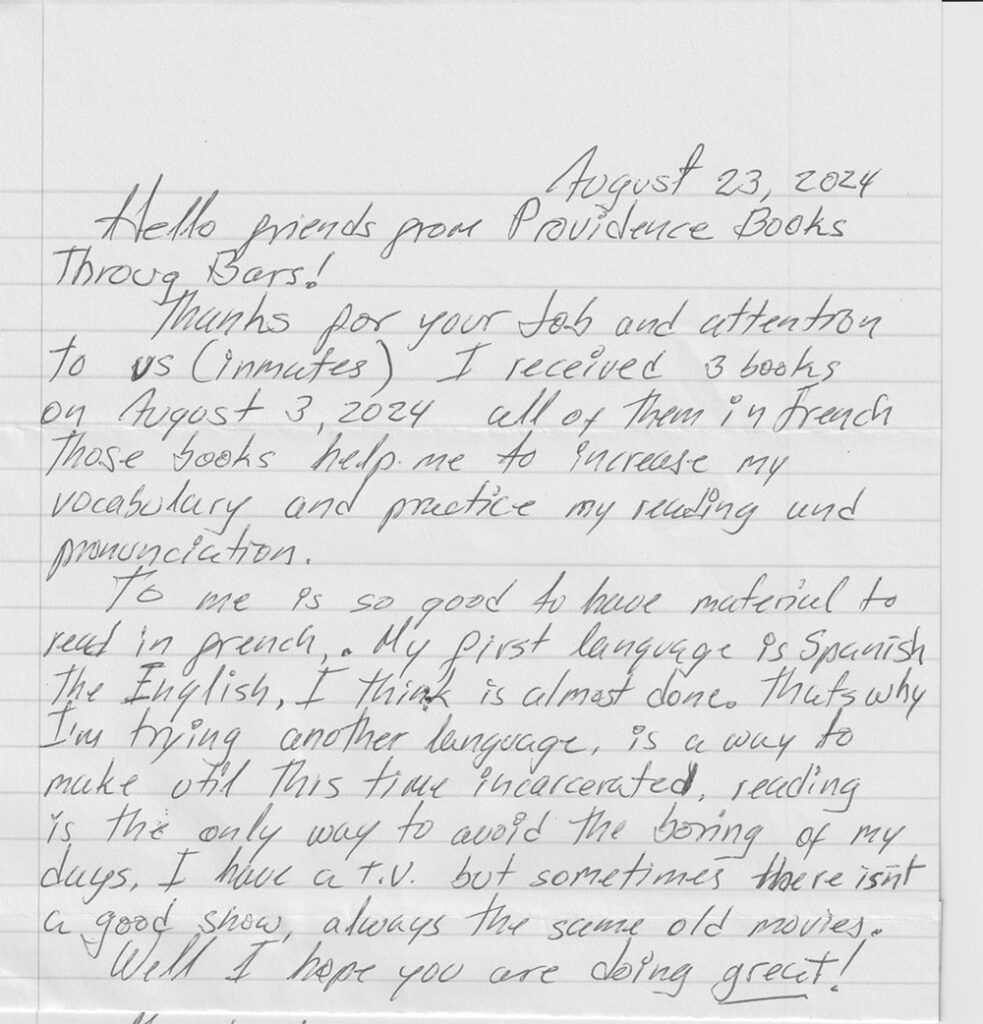 August 23, 2024
Hello friends from Providence Books
Throug Bars!
Thanks for your Job and attention
to us (inmates) I received 3 books
on August 3, 2024 all of them in French
Those books help me to increase my
vocabulary and practice my reading and
pronunciation.
To me is so good to have material to
read in french,. My first language is Spanish
The English, I think is almost done. Thats why
I'm trying another language, is a way to
make util this time incarcerated, reading
is the only way to avoid the boring of my
days, I have a T.V. but sometimes there isn't
a good show, always the same old movies.
Well I hope you are doing great!